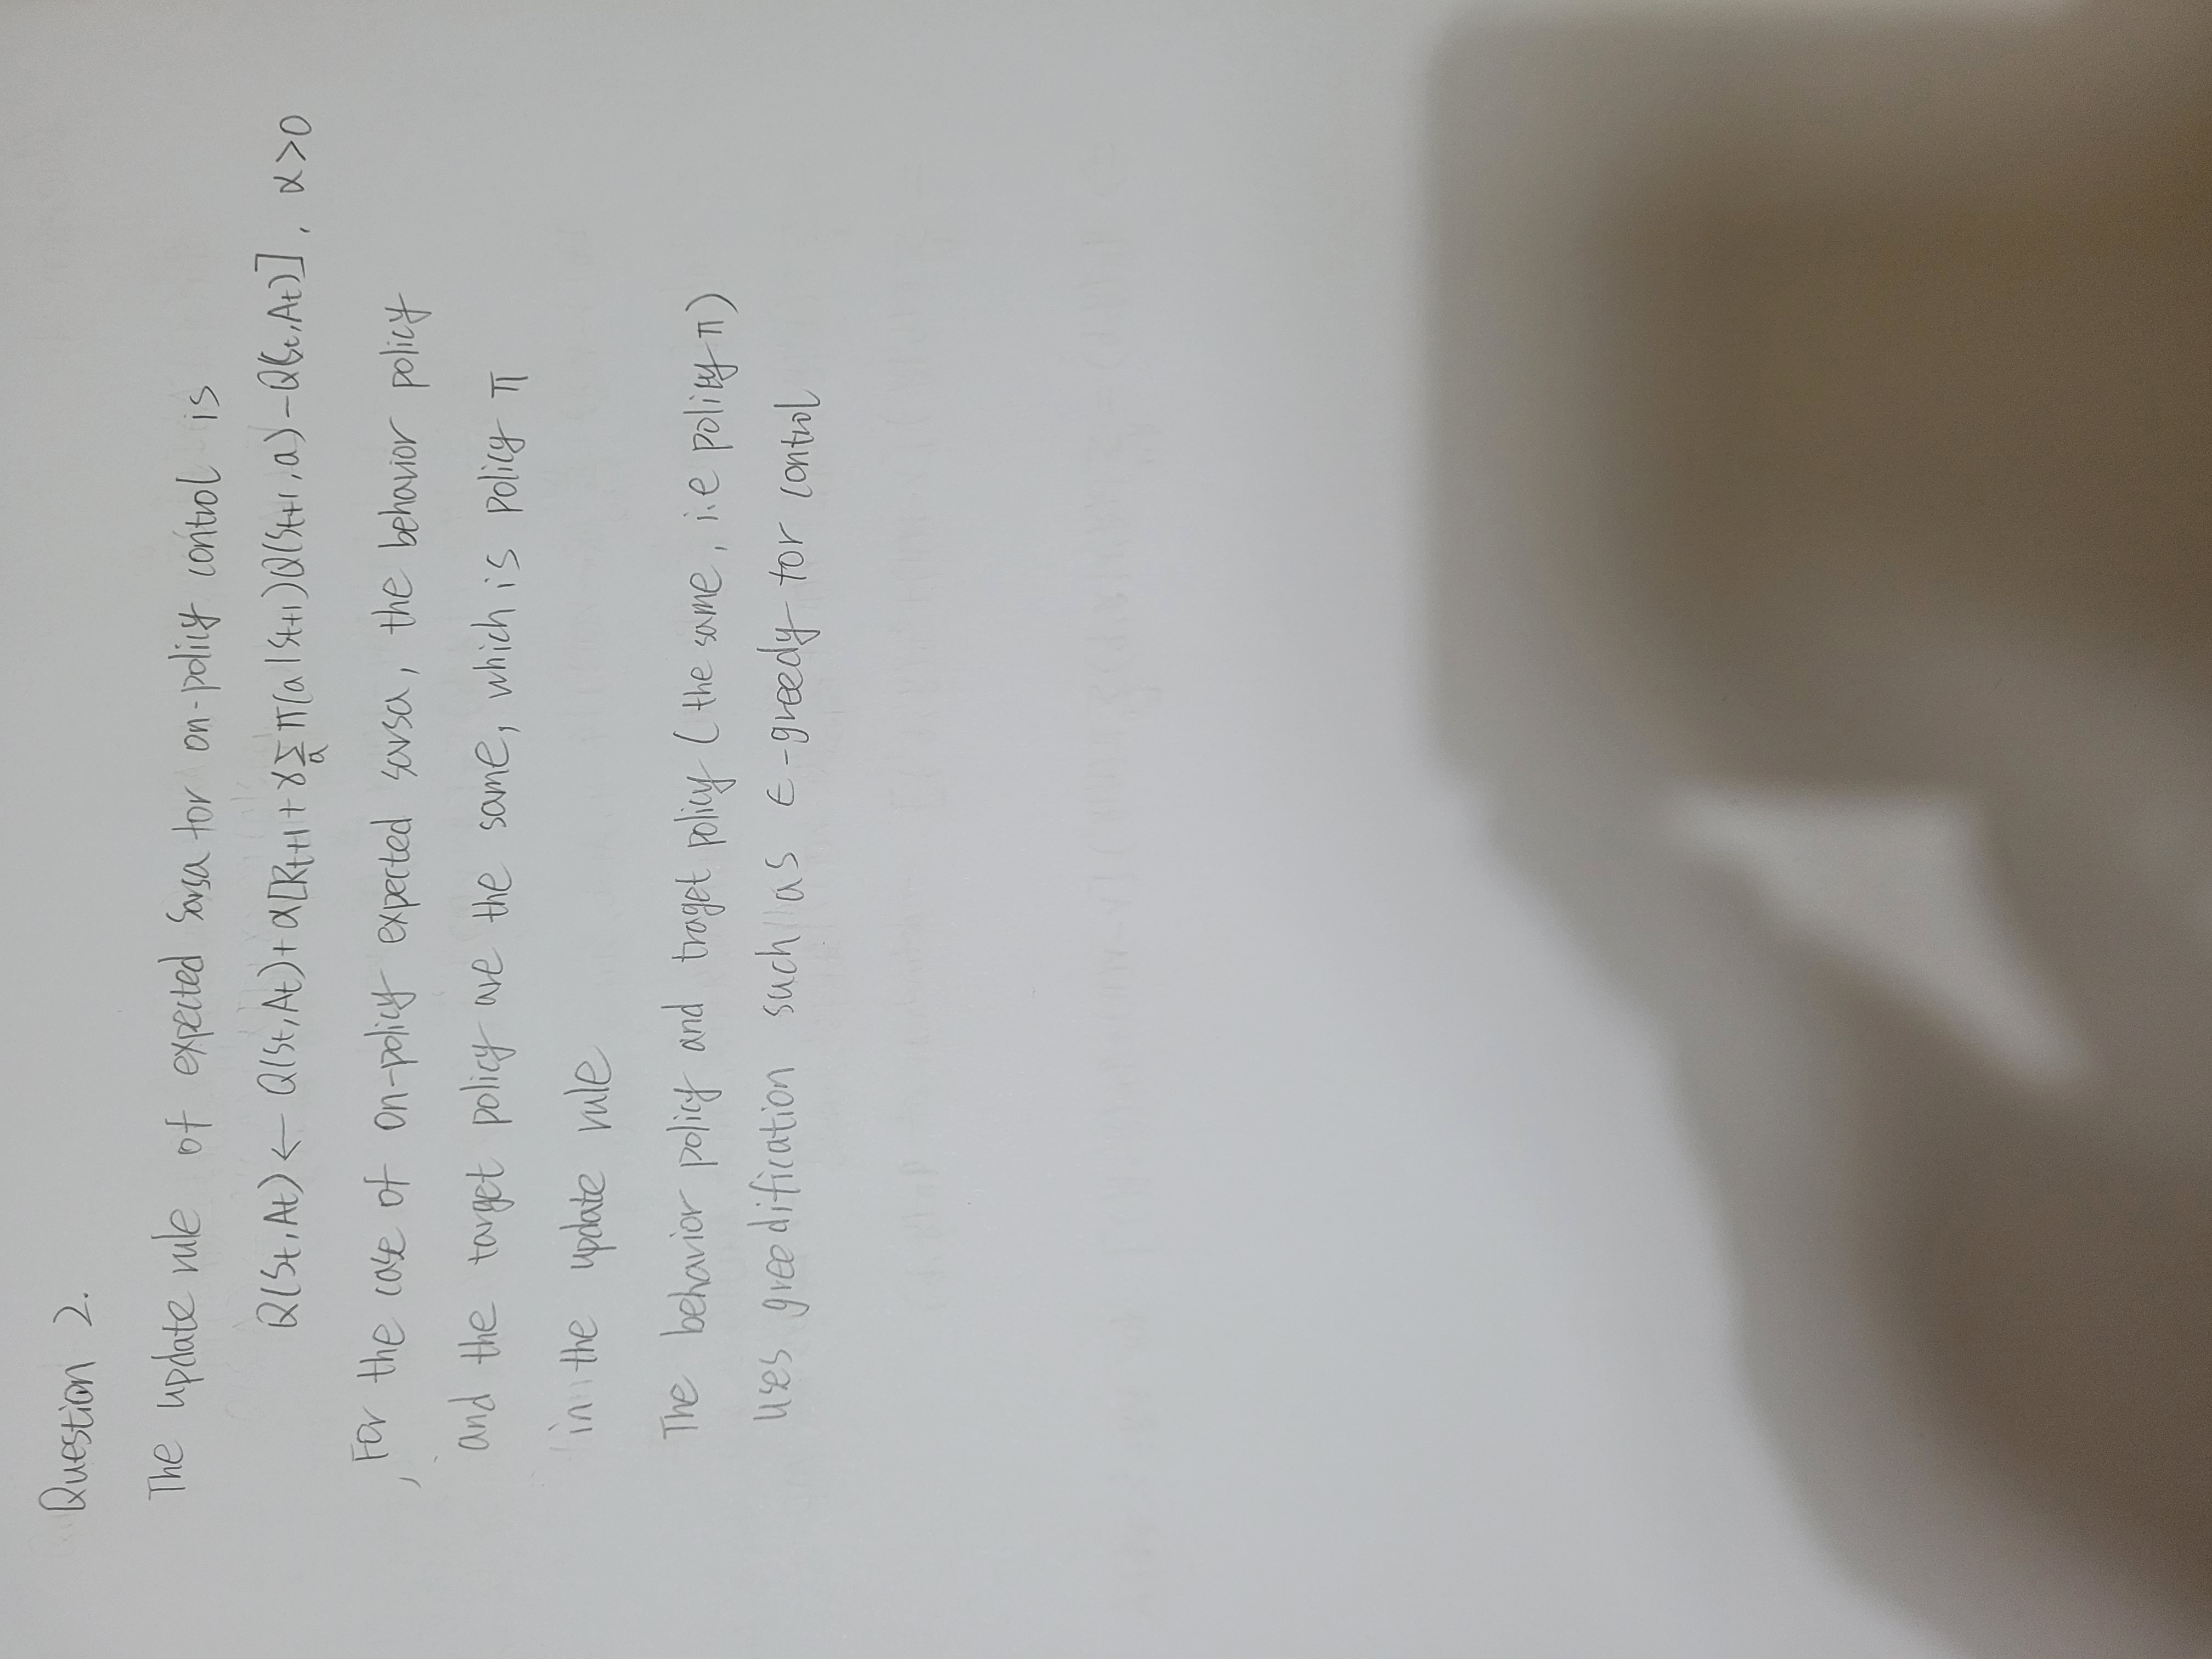 Question 2.
The update rule of expected Sarsa for on-policy control is
Q(St, At) ← Q(St, At) + α[Rt+1 + γ Σa π(a|St+1)Q(St+1, a) - Q(St, At)], α>0
For the case of on-policy expected sarsa, the behavior policy
and the target policy are the same, which is policy π
in the update rule
The behavior policy and traget policy (the same, i.e policy π)
uses greedification such as ε-greedy for control